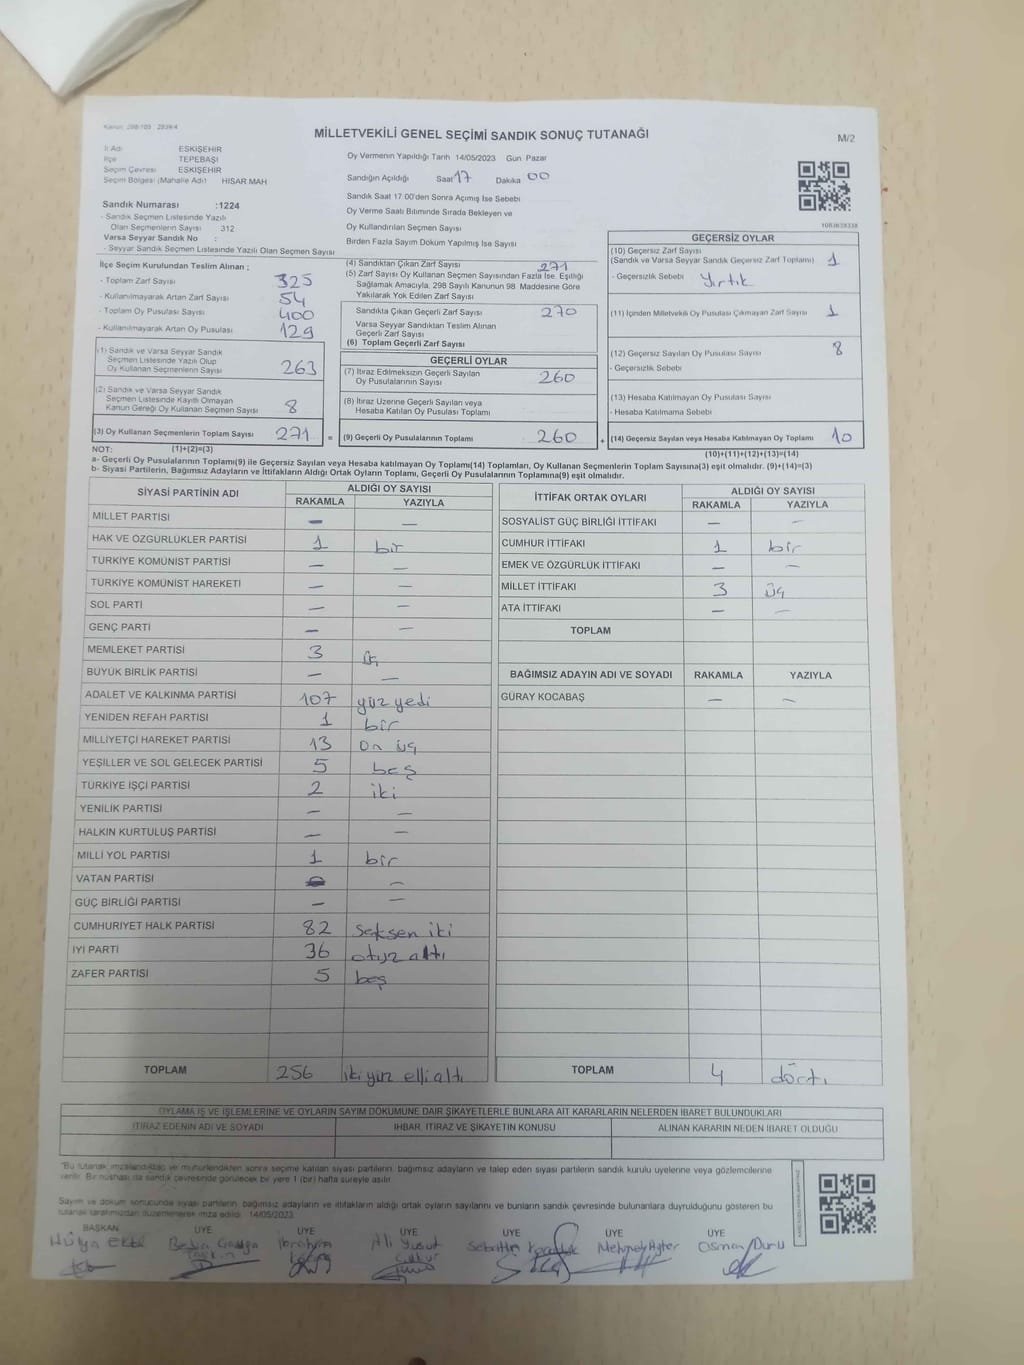 Kanun: 298/105 2839/4
MİLLETVEKİLİ GENEL SEÇİMİ SANDIK SONUÇ TUTANAĞI
M/2
İl Adı ESKİŞEHİR
İlçe TEPEBAŞI
Seçim Çevresi ESKİŞEHİR
Seçim Bölgesi (Mahalle Adı) HISAR MAH
Sandık Numarası :1224
- Sandık Seçmen Listesinde Yazılı
Olan Seçmenlerin Sayısı 312
Varsa Seyyar Sandık No :
- Seyyar Sandık Seçmen Listesinde Yazılı Olan Seçmen Sayısı
Oy Vermenin Yapıldığı Tarih 14/05/2023 Gün Pazar
Sandığın Açıldığı Saat 17 Dakika 00
Sandık Saat 17:00'den Sonra Açımış İse Sebebi
Oy Verme Saati Bitiminde Sırada Bekleyen ve
Oy Kullandırılan Seçmen Sayısı
Birden Fazla Sayım Döküm Yapılmış İse Sayısı
İlçe Seçim Kurulundan Teslim Alınan ;
- Toplam Zarf Sayısı 325
- Kullanılmayarak Artan Zarf Sayısı 54
- Toplam Oy Pusulası Sayısı 400
- Kullanılmayarak Artan Oy Pusulası 129
(1) Sandık ve Varsa Seyyar Sandık
Seçmen Listesinde Yazılı Olup
Oy Kullanan Seçmenlerin Sayısı 263
(2) Sandık ve Varsa Seyyar Sandık
Seçmen Listesinde Kayıtlı Olmayan
Kanun Gereği Oy Kullanan Seçmen Sayısı 8
(3) Oy Kullanan Seçmenlerin Toplam Sayısı 271 =
(4) Sandıktan Çıkan Zarf Sayısı 271
(5) Zarf Sayısı Oy Kullanan Seçmen Sayısından Fazla İse, Eşitliği
Sağlamak Amacıyla, 298 Sayılı Kanunun 98. Maddesine Göre
Yakılarak Yok Edilen Zarf Sayısı
Sandıkta Çıkan Geçerli Zarf Sayısı 270
Varsa Seyyar Sandıktan Teslim Alınan
Geçerli Zarf Sayısı
(6) Toplam Geçerli Zarf Sayısı
GEÇERLİ OYLAR
(7) İtiraz Edilmeksizin Geçerli Sayılan
Oy Pusulalarının Sayısı 260
(8) İtiraz Üzerine Geçerli Sayılan veya
Hesaba Katılan Oy Pusulası Toplamı
(9) Geçerli Oy Pusulalarının Toplamı 260 +
GEÇERSİZ OYLAR
(10) Geçersiz Zarf Sayısı
(Sandık ve Varsa Seyyar Sandık Geçersiz Zarf Toplamı) 1
- Geçersizlik Sebebi Yırtık
(11) İçinden Milletvekili Oy Pusulası Çıkmayan Zarf Sayısı 1
(12) Geçersiz Sayılan Oy Pusulası Sayısı 8
- Geçersizlik Sebebi
(13) Hesaba Katılmayan Oy Pusulası Sayısı
- Hesaba Katılmama Sebebi
(14) Geçersiz Sayılan veya Hesaba Katılmayan Oy Toplamı 10
NOT: (1)+(2)=(3)
(10)+(11)+(12)+(13)=(14)
a- Geçerli Oy Pusulalarının Toplamı(9) ile Geçersiz Sayılan veya Hesaba katılmayan Oy Toplamı(14) Toplamları, Oy Kullanan Seçmenlerin Toplam Sayısına(3) eşit olmalıdır. (9)+(14)=(3)
b- Siyasi Partilerin, Bağımsız Adayların ve İttifakların Aldığı Oyların Toplamı, Geçerli Oy Pusulalarının Toplamına(9) eşit olmalıdır.
SİYASİ PARTİNİN ADI ALDIĞI OY SAYISI
RAKAMLA YAZIYLA
MİLLET PARTİSİ — —
HAK VE ÖZGÜRLÜKLER PARTİSİ 1 bir
TÜRKİYE KOMÜNİST PARTİSİ — —
TÜRKİYE KOMÜNİST HAREKETİ — —
SOL PARTİ — —
GENÇ PARTİ — —
MEMLEKET PARTİSİ 3 üç
BÜYÜK BİRLİK PARTİSİ — —
ADALET VE KALKINMA PARTİSİ 107 yüz yedi
YENİDEN REFAH PARTİSİ 1 bir
MİLLİYETÇİ HAREKET PARTİSİ 13 on üç
YEŞİLLER VE SOL GELECEK PARTİSİ 5 beş
TÜRKİYE İŞÇİ PARTİSİ 2 iki
YENİLİK PARTİSİ — —
HALKIN KURTULUŞ PARTİSİ — —
MİLLİ YOL PARTİSİ 1 bir
VATAN PARTİSİ — —
GÜÇ BİRLİĞİ PARTİSİ — —
CUMHURİYET HALK PARTİSİ 82 seksen iki
İYİ PARTİ 36 otuz altı
ZAFER PARTİSİ 5 beş
TOPLAM 256 iki yüz elli altı
İTTİFAK ORTAK OYLARI ALDIĞI OY SAYISI
RAKAMLA YAZIYLA
SOSYALİST GÜÇ BİRLİĞİ İTTİFAKI — —
CUMHUR İTTİFAKI 1 bir
EMEK VE ÖZGÜRLÜK İTTİFAKI — —
MİLLET İTTİFAKI 3 üç
ATA İTTİFAKI — —
TOPLAM
BAĞIMSIZ ADAYIN ADI VE SOYADI RAKAMLA YAZIYLA
GÜRAY KOCABAŞ — —
TOPLAM 4 dört
OYLAMA İŞ VE İŞLEMLERİNE VE OYLARIN SAYIM DÖKÜMÜNE DAİR ŞİKAYETLERLE BUNLARA AİT KARARLARIN NELERDEN İBARET BULUNDUKLARI
İTİRAZ EDENİN ADI VE SOYADI İHBAR, İTİRAZ VE ŞİKAYETİN KONUSU ALINAN KARARIN NEDEN İBARET OLDUĞU
"Bu tutanak, imzalandıktan ve mühürlendikten sonra seçime katılan siyasi partilerin, bağımsız adayların ve talep eden siyasi partilerin sandık kurulu üyelerine veya gözlemcilerine
verilir. Bir nüshası da sandık çevresinde görülecek bir yere 1 (bir) hafta süreyle asılır.
Sayım ve döküm sonucunda siyasi partilerin, bağımsız adayların ve ittifakların aldığı ortak oyların sayılarını ve bunların sandık çevresinde bulunanlara duyrulduğunu gösteren bu
tutanak tarafımızdan düzenlenerek imza edildi. 14/05/2023
BAŞKAN ÜYE ÜYE ÜYE ÜYE ÜYE ÜYE
Hülya İbrahim Ali Yusuf Sebattin Mehmet Ayter Osman Duru